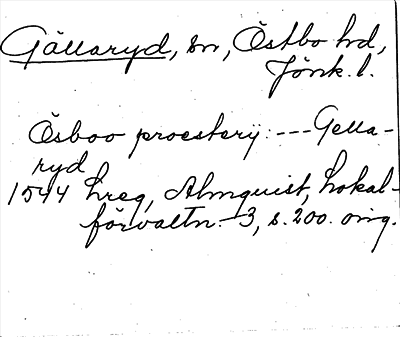 Gällaryd, sn, Östbo hd,
Jönk. l.
Ösboo proesterij: --- Gella-
ryd
1544 hreg, Almquist, Lokal-
förvaltn. 3, s. 200. omg.